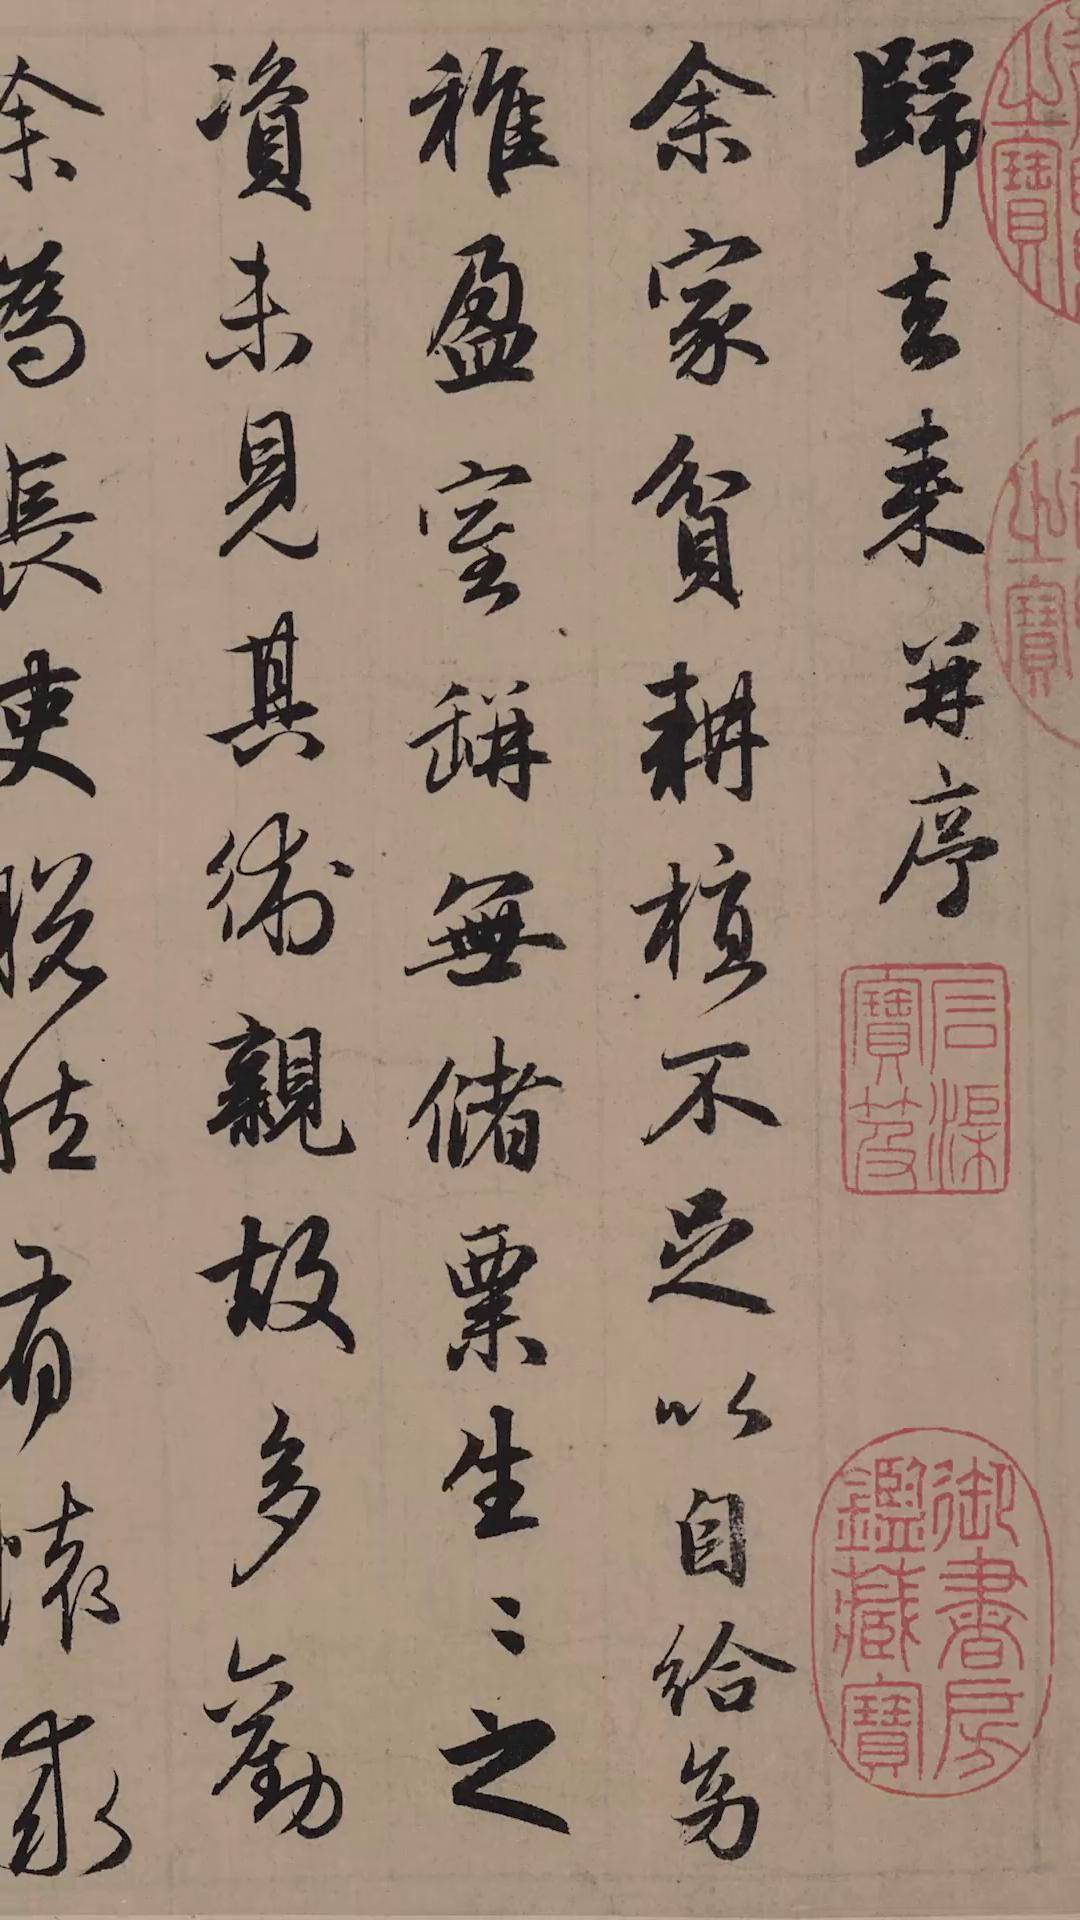 歸去來并序
余家貧耕植不足以自給幼
稚盈室缾無儲粟生〻之
資未見其術親故多勸
余為長吏脫然有懷求
之寶
之寶
石渠寶笈
御書房鑑藏寶